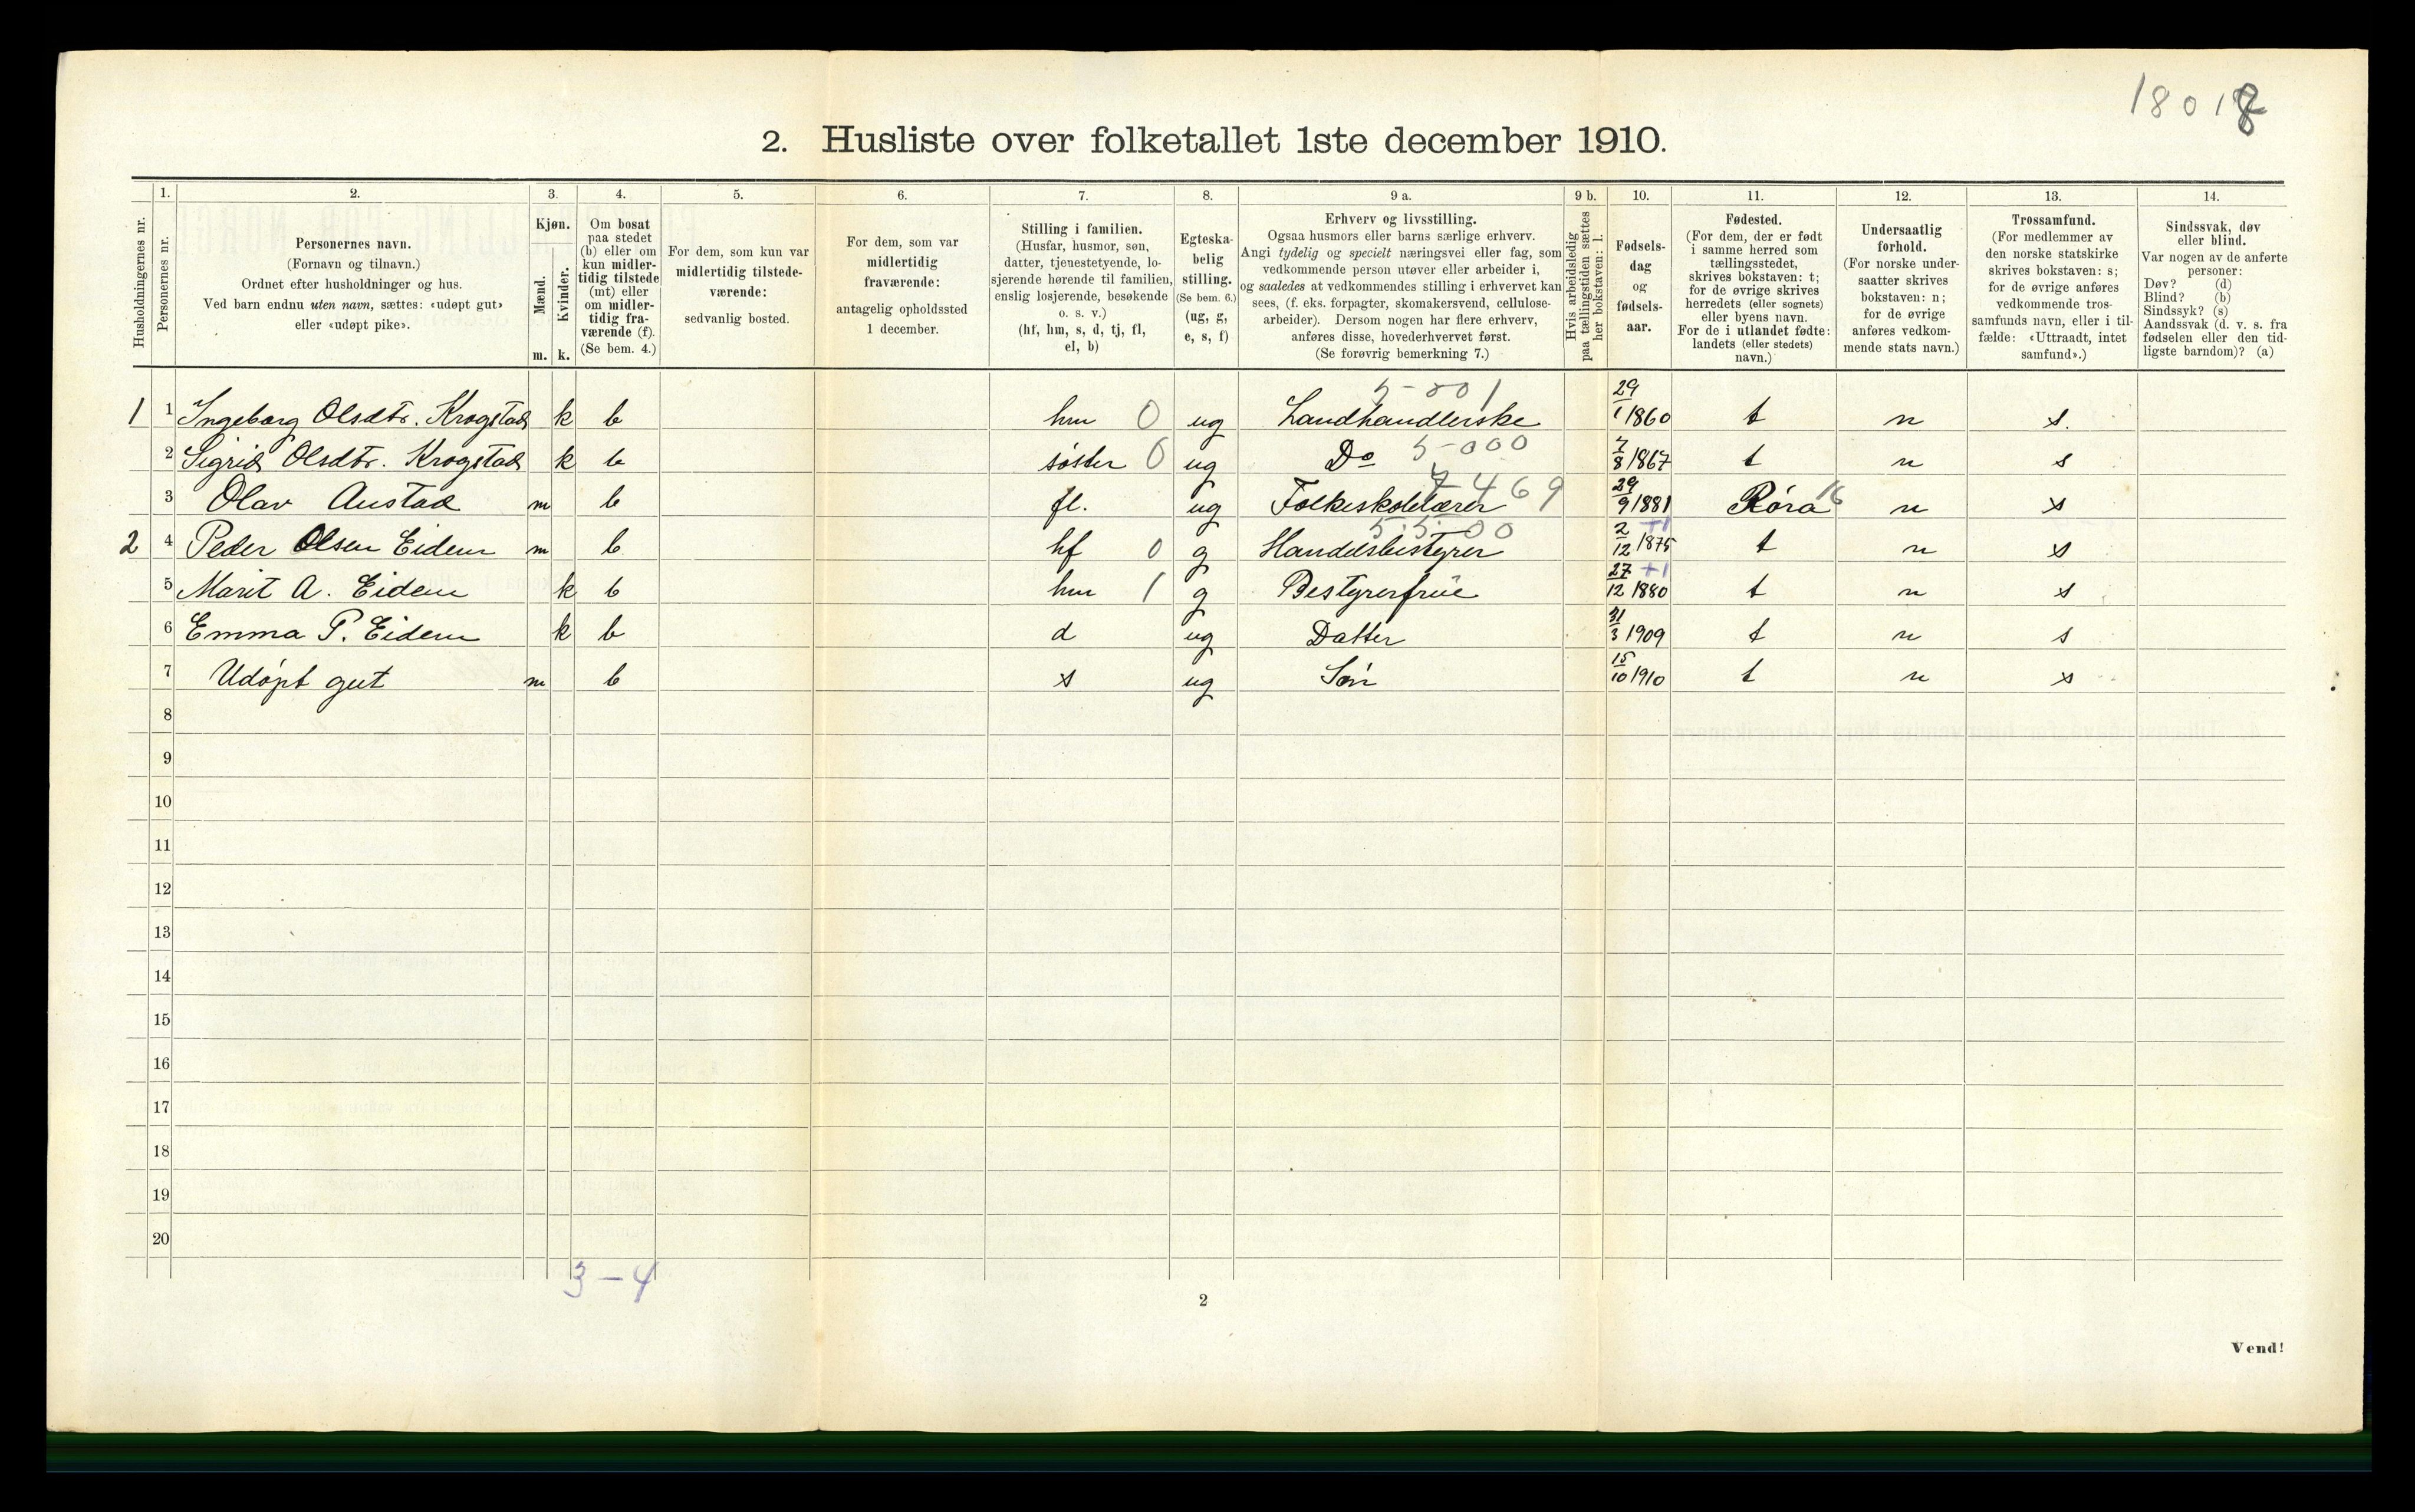 1801
2. Husliste over folketallet 1ste december 1910.
Husholdningernes nr.
1.
Personernes nr.
2.
Personernes navn.
(Fornavn og tilnavn.)
Ordnet efter husholdninger og hus.
Ved barn endnu uten navn, sættes: «udøpt gut»
eller «udøpt pike».
3.
Kjøn.
Mænd.
Kvinder.
m. k.
4.
Om bosat
paa stedet
(b) eller om
kun midler-
tidig tilstede
(mt) eller
om midler-
tidig fra-
værende (f).
(Se bem. 4.)
5.
For dem, som kun var
midlertidig tilstede-
værende:
sedvanlig bosted.
6.
For dem, som var
midlertidig
fraværende:
antagelig opholdssted
1 december.
7.
Stilling i familien.
(Husfar, husmor, søn,
datter, tjenestetyende, lo-
sjerende hørende til familien,
enslig losjerende, besøkende
o. s. v.)
(hf, hm, s, d, tj, fl,
el, b)
8.
Egteska-
belig
stilling.
(Se bem. 6.)
(ug, g,
e, s, f)
9 a.
Erhverv og livsstilling.
Ogsaa husmors eller barns særlige erhverv.
Angi tydelig og specielt næringsvei eller fag, som
vedkommende person utøver eller arbeider i,
og saaledes at vedkommendes stilling i erhvervet kan
sees, (f. eks. forpagter, skomakersvend, cellulose-
arbeider). Dersom nogen har flere erhverv,
anføres disse, hovederhvervet først.
(Se forøvrig bemerkning 7.)
9 b.
Hvis arbeidsledig
paa tællingstiden sættes
her bokstaven: l.
10.
Fødsels-
dag
og
fødsels-
aar.
11.
Fødested.
(For dem, der er født
i samme herred som
tællingsstedet,
skrives bokstaven: t;
for de øvrige skrives
herredets (eller sognets)
eller byens navn.
For de i utlandet fødte:
landets (eller stedets)
navn.)
12.
Undersaatlig
forhold.
(For norske under-
saatter skrives
bokstaven: n;
for de øvrige
anføres vedkom-
mende stats navn.)
13.
Trossamfund.
(For medlemmer av
den norske statskirke
skrives bokstaven: s;
for de øvrige anføres
vedkommende tros-
samfunds navn, eller i til-
fælde: «Uttraadt, intet
samfund».)
14.
Sindssvak, døv
eller blind.
Var nogen av de anførte
personer:
Døv? (d)
Blind? (b)
Sindssyk? (s)
Aandssvak (d. v. s. fra
fødselen eller den tid-
ligste barndom)? (a)
1 1 Ingeborg Olsdtr. Krogstad k b hm 0 ug Landhandlerske 29/1 1860 t n s.
2 Sigrid Olsdtr. Krogstad k b søster 0 ug Do 5-000 7/8 1867 t n s
3 Olav Austad m b fl. ug Folkeskolelærer 7469 29/9 1881 Røra 16 n s
2 4 Peder Olsen Eidem m b hf 0 g Handelsbestyrer 5.5-00 2/12 1875 +1 t n s
5 Marit A. Eidem k b hm 1 g Bestyrerfrue 27/12 1880 +1 t n s
6 Emma P. Eidem k b d ug Datter 31/3 1909 t n s
7 Udøpt gut m b s ug Søn 15/10 1910 t n s
8
9
10
11
12
13
14
15
16
17
18
19
20
3-4
2
Vend!